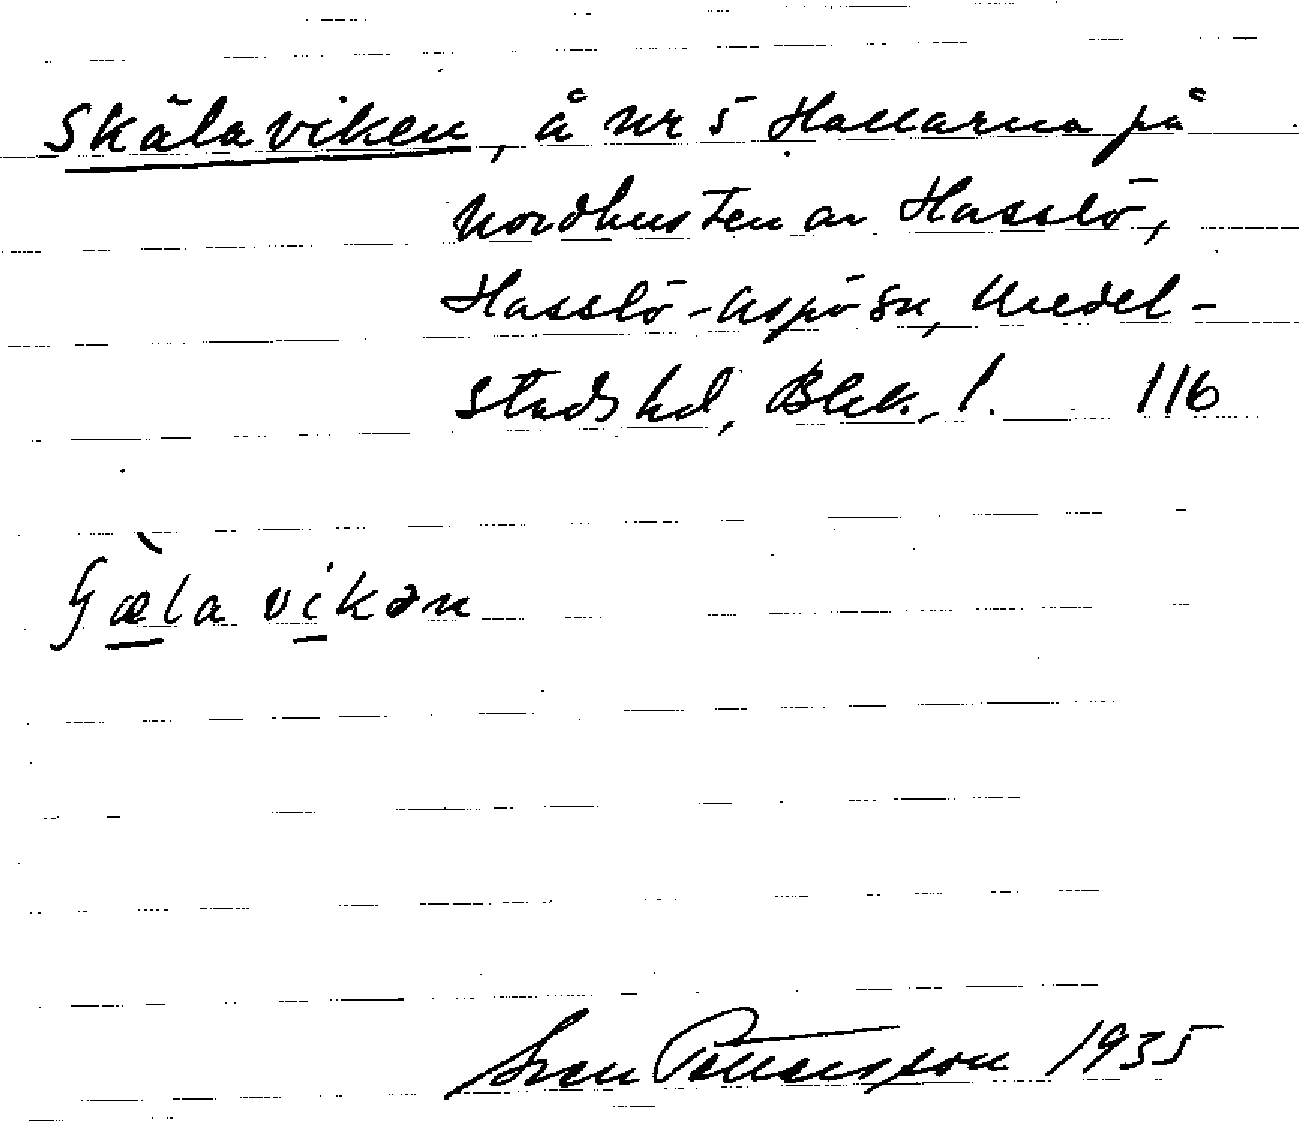 Skälaviken, å nr 5 Hallarna på
Nordkusten av Hasslö,
Hasslö-Aspö sn, Medel-
stads hd, Blek. l. 116
ʃæ̀la vikən
Sven Pettersson 1935